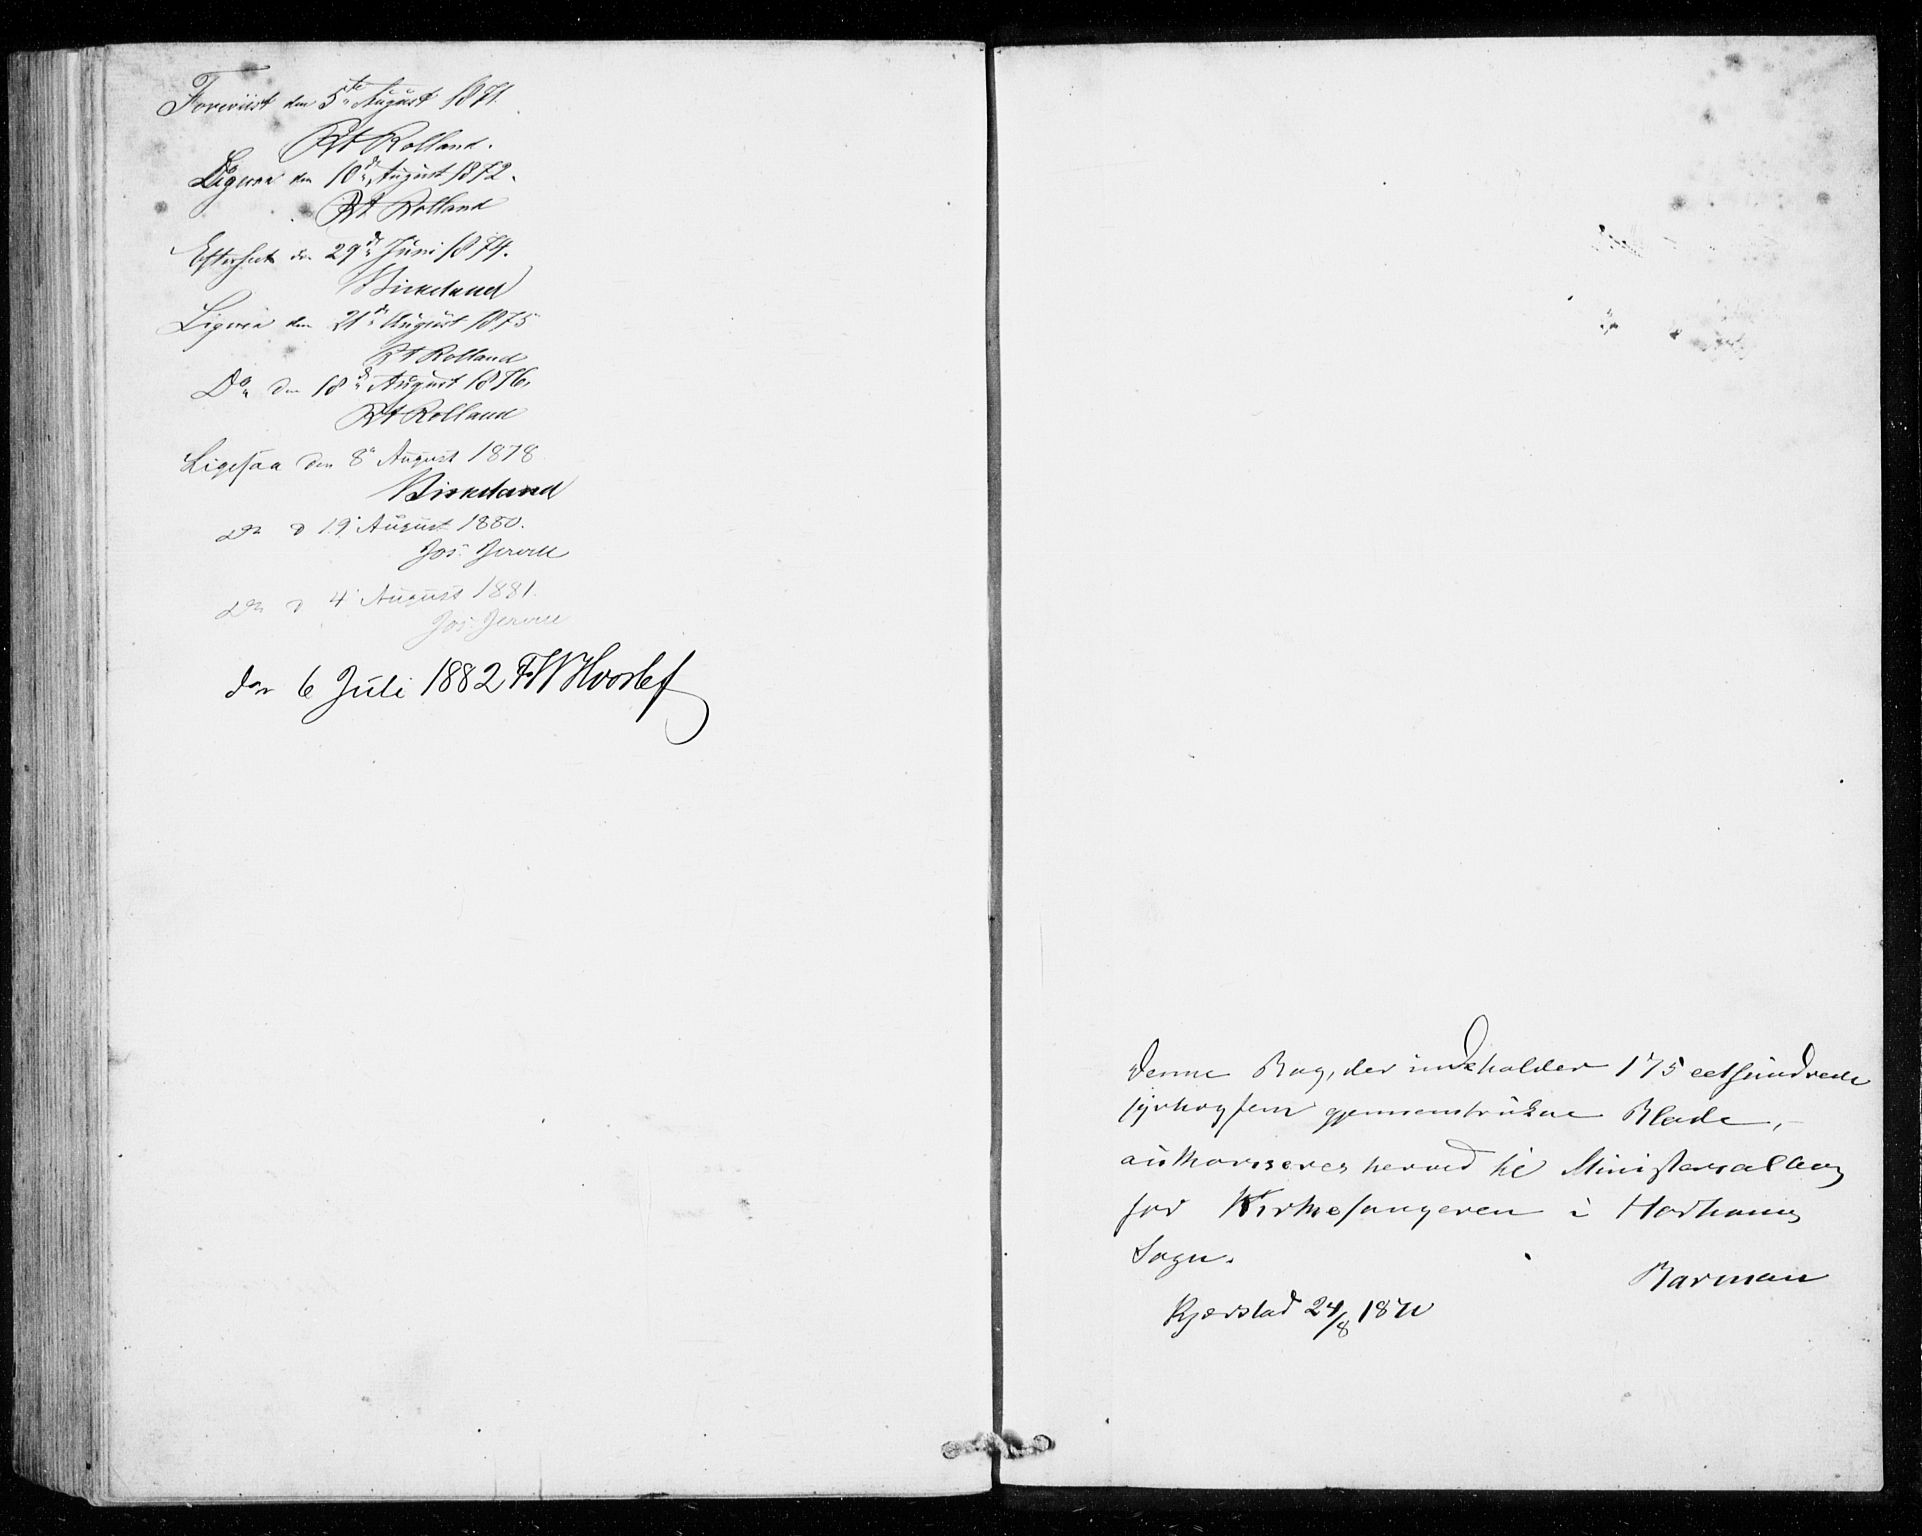 Foreviist den 5te August 1871.
Kt Rolland.
Ligesaa den 10de August 1872.
Kt Rolland
Efterseet den 29de Juni 1874.
Birkeland
Ligesaa den 21de August 1875
Kt Rolland
Do den 18de August 1876,
Kt Rolland
Ligesaa den 8de August 1878
Birkeland
Do d 19 August 1880.
Jos. Jervell
Do d 4 August 1881.
Jos. Jervell
do 6 Juli 1882 FW Hvoslef
Denne Bog, der indeholder 175 eethundrede
syvtiogfem gjennemtrukne Blade,
authoriseres herved til Ministerialbog
for Kirkesangeren i Harhams
Sogn.
Barman
Kjærstad 24/8 1870